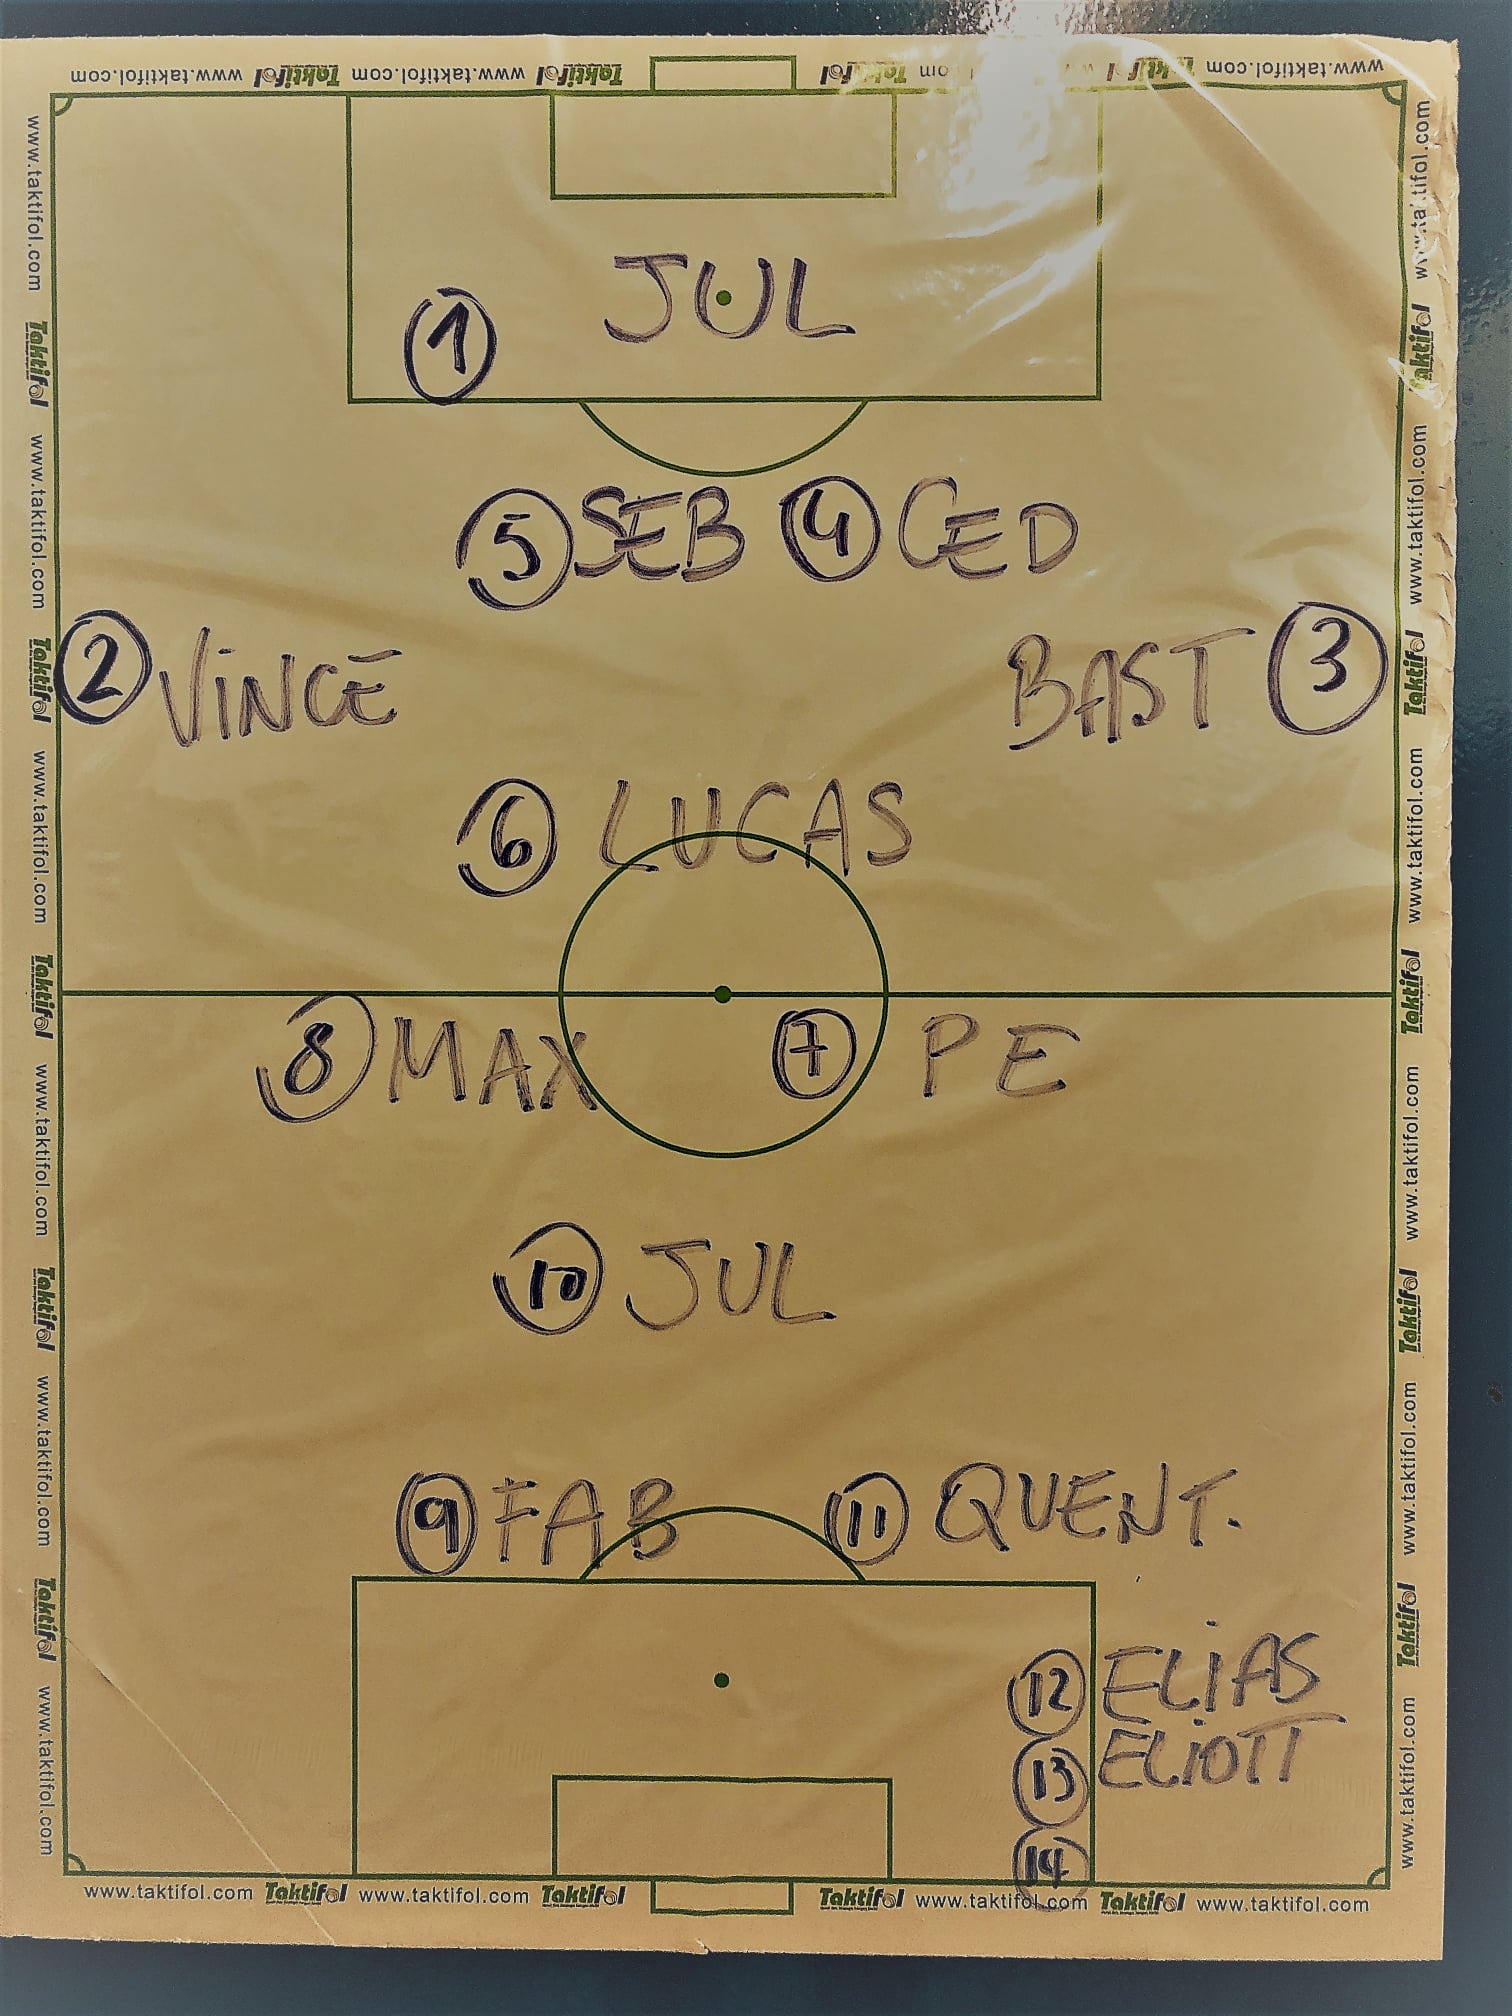 www.taktifol.com Taktifol www.taktifol.com Taktifol Taktifol www.taktifol.com
① JUL
⑤ SEB ④ CED
② VINCE BAST ③
⑥ LUCAS
⑧ MAX ⑦ PE
⑩ JUL
⑨ FAB ⑪ QUENT.
⑫ ELIAS
⑬ ELIOTT
⑭
www.taktifol.com Taktifol www.taktifol.com Taktifol Taktifol www.taktifol.com Taktifol www.taktifol.com
www.taktifol.com Taktifol www.taktifol.com Taktifol www.taktifol.com Taktifol www.taktifol.com Taktifol www.taktifol.com Taktifol www.taktifol.com
www.taktifol.com Taktifol www.taktifol.com Taktifol www.taktifol.com Taktifol www.taktifol.com Taktifol www.taktifol.com Taktifol www.taktifol.com